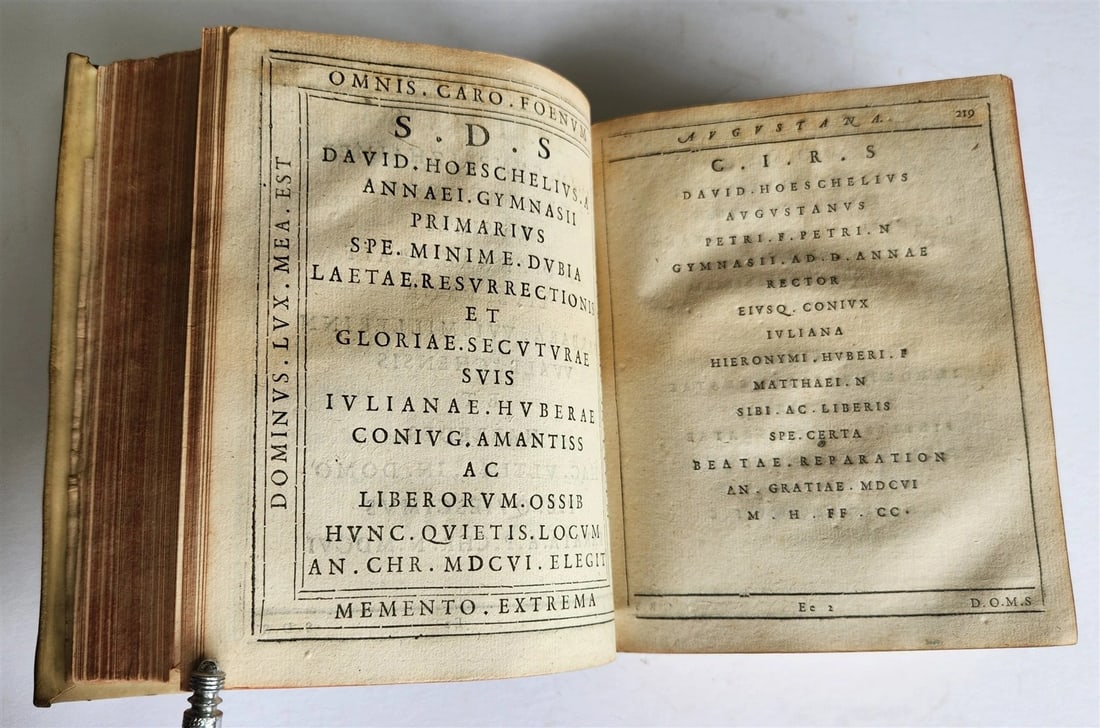 OMNIS . CARO . FOENVM
DOMINVS . LVX . MEA . EST
S . D . S
DAVID . HOESCHELIVS . A
ANNAEI . GYMNASII
PRIMARIVS
SPE . MINIME . DVBIA
LAETAE . RESVRRECTIONIS
ET
GLORIAE . SECVTVRAE
SVIS
IVLIANAE . HVBERAE
CONIVG . AMANTISS
AC
LIBERORVM . OSSIB
HVNC . QVIETIS . LOCVM
AN . CHR . MDCVI . ELEGIT
MEMENTO . EXTREMA
AVGVSTANA . 219
C . I . R . S
DAVID . HOESCHELIVS
AVGVSTANVS
PETRI . F . PETRI . N
GYMNASII . AD . D . ANNAE
RECTOR
EIVSQ . CONIVX
IVLIANA
HIERONYMI . HVBERI . F
MATTHAEI . N
SIBI . AC . LIBERIS
SPE . CERTA
BEATAE . REPARATION
AN . GRATIAE . MDCVI
M . H . FF . CC .
Ee 2 D.O.M.S